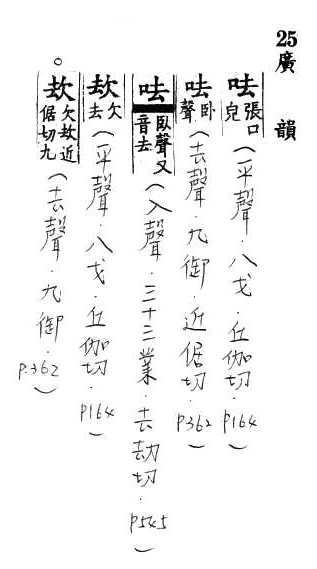 25廣韻
呿張口皃(平聲.八戈.丘伽切.P164)
呿臥聲(去聲.九御.近倨切.P362)
呿臥聲又音去(入聲.三十三業.去劫切.P545)
㰦欠去(平聲.八戈.丘伽切.P164)
㰦欠㰦近倨切九(去聲.九御.P.362)